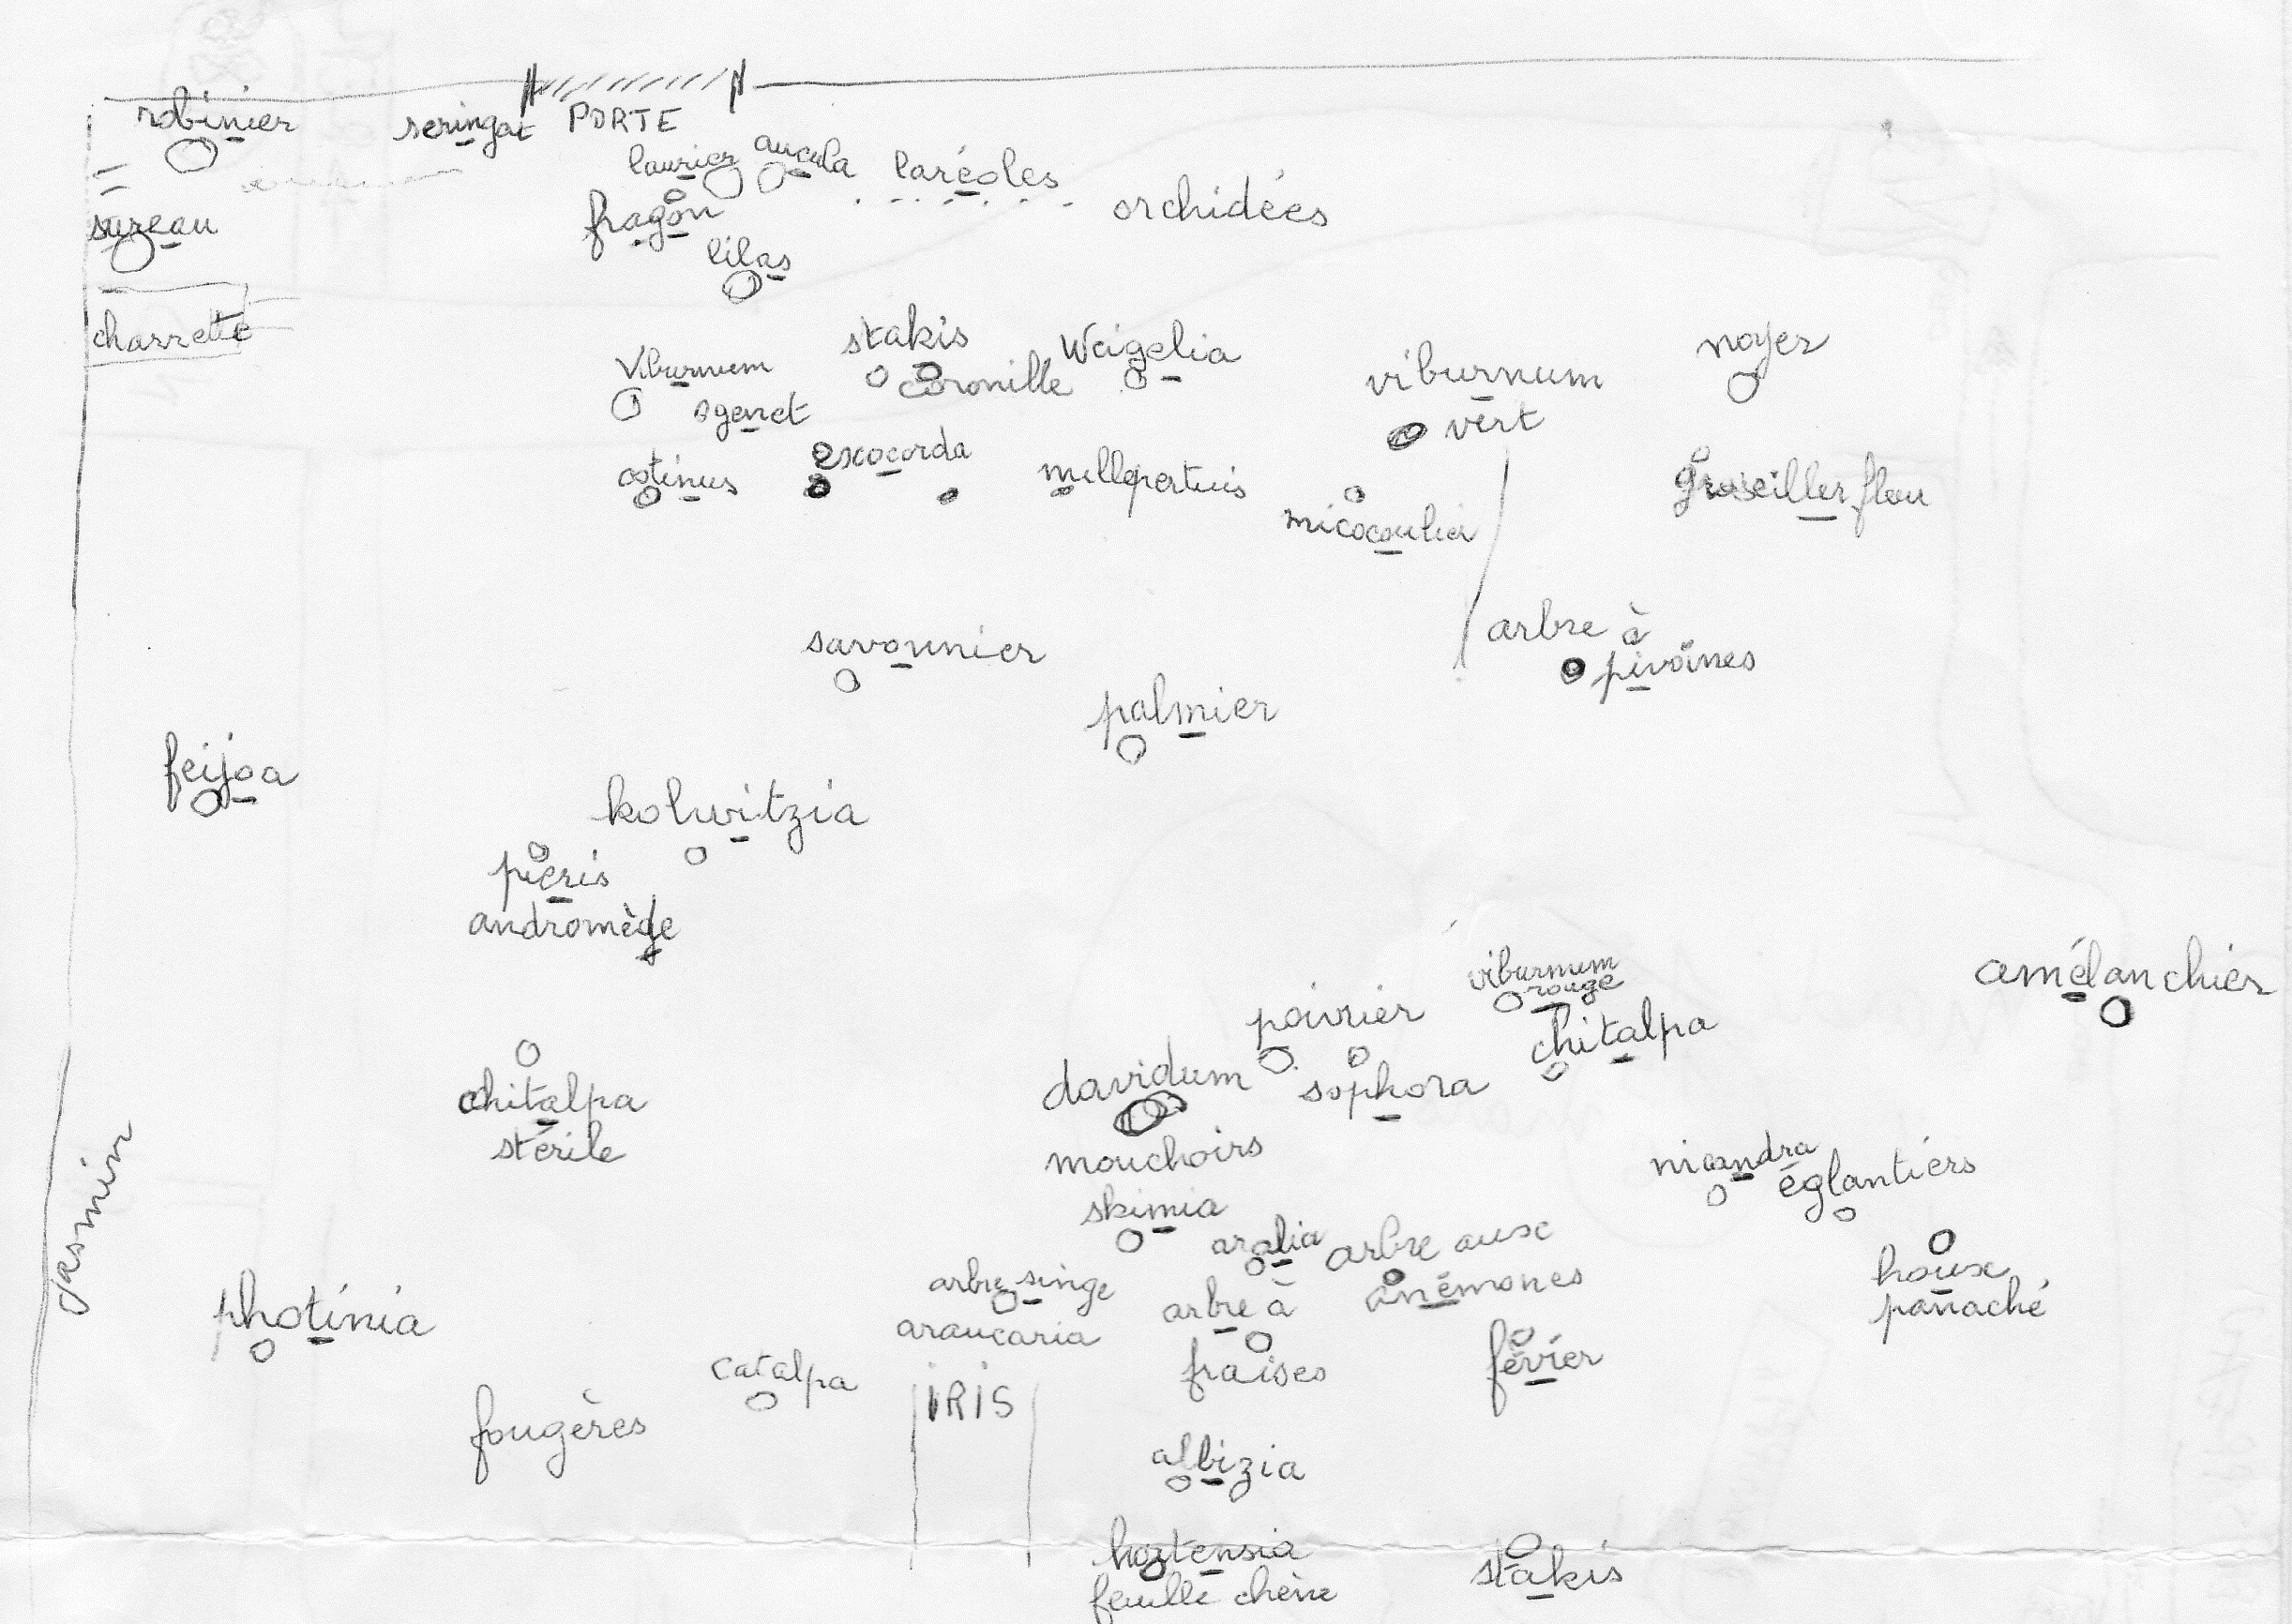 robinier
seringat
PORTE
laurier
aucuba
laréoles
orchidées
fragon
sureau
lilas
charrette
stakis
Weigelia
noyer
viburnum
coronille
viburnum
vert
genet
excocorda
cotinus
millepertuis
groseiller fleur
micocoulier
arbre à
pivoines
savonnier
palmier
feijoa
kolwitzia
pieris
andromède
viburnum
rouge
amélanchier
poirier
chitalpa
davidum
sophora
chitalpa
stérile
mouchoirs
nicandra
églantiers
jasmin
skimia
aralia
arbre aux
anémones
houx
panaché
arbre singe
araucaria
arbre à
fraises
photinia
févier
catalpa
IRIS
fougères
albizia
hortensia
feuille chêne
stakis